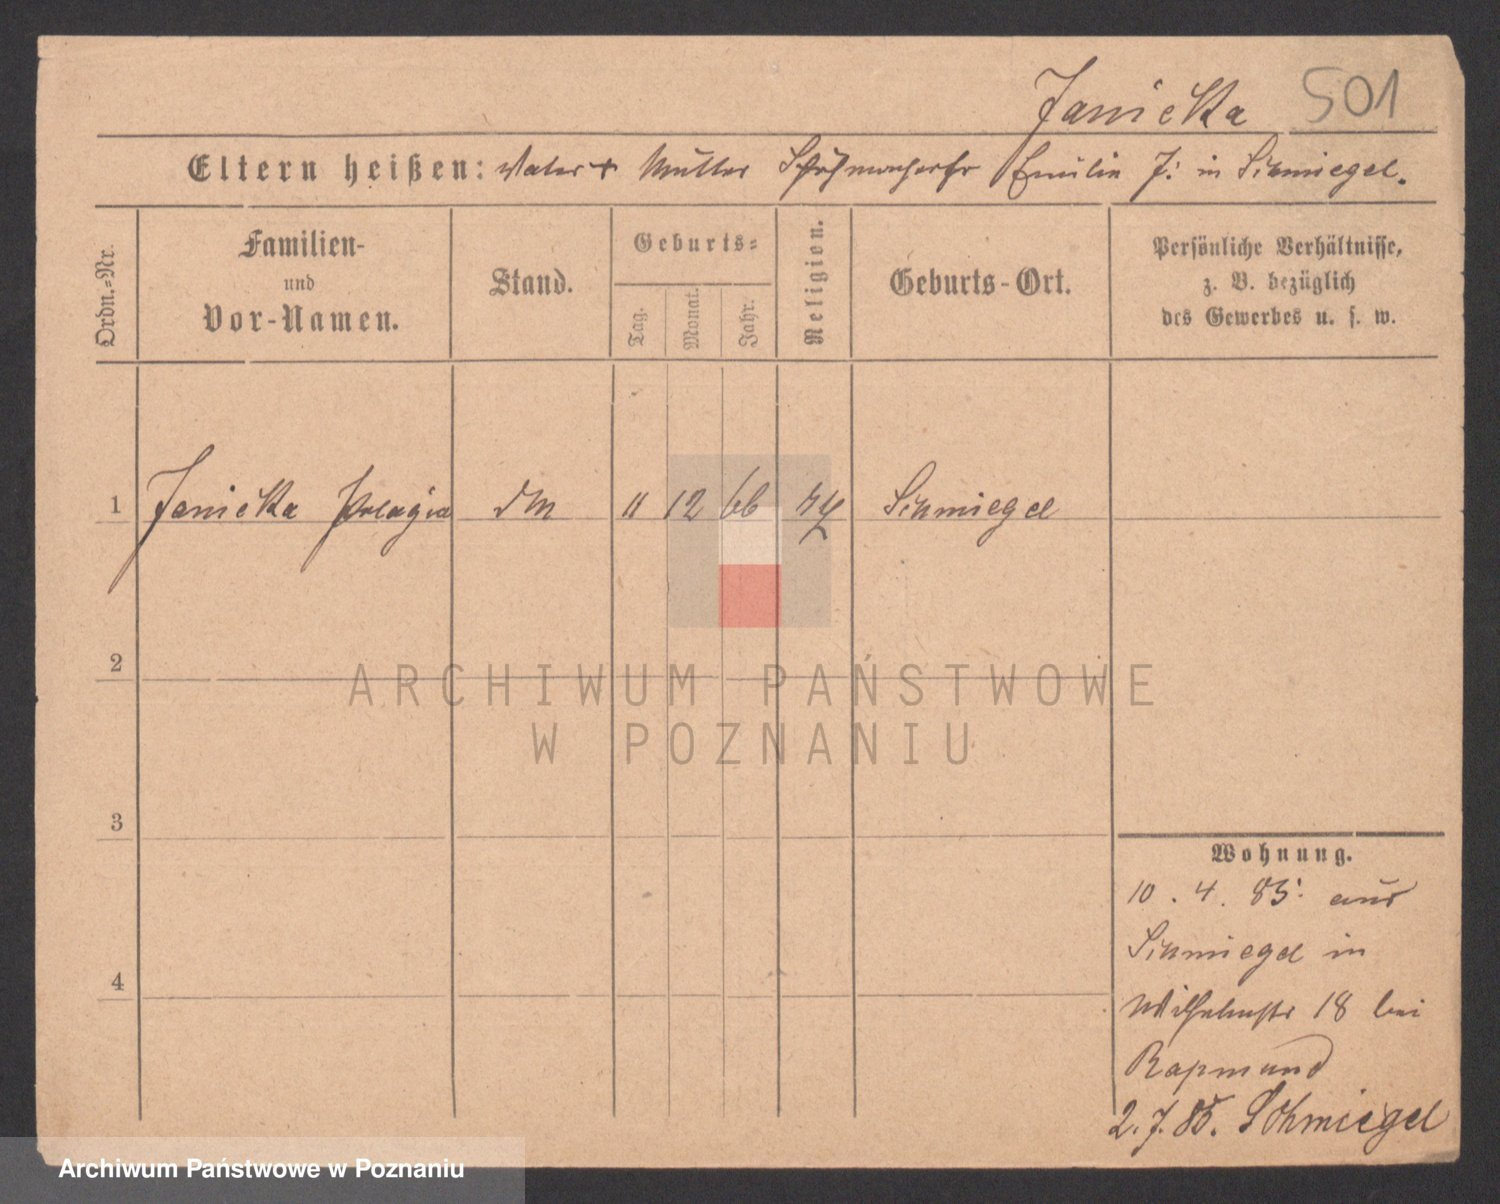 Janicka 501
Eltern heißen: Vater + Mutter Schuhmacherfr Emilie J: in Schmiegel.
Ordn.-Nr.
Familien-
und
Vor-Namen.
Stand.
Geburts-
Tag.
Monat.
Jahr.
Religion.
Geburts-Ort.
Persönliche Verhältnisse,
z. B. bezüglich
des Gewerbes u. s. w.
1 Janicka Pelagia 11 12 66 Schmiegel
2
3
4
ARCHIWUM PAŃSTWOWE
W POZNANIU
Wohnung.
10. 4. 85. aus
Schmiegel in
Wilhelmstr 18 bei
Rapmund
2. 7. 85. Schmiegel
Archiwum Państwowe w Poznaniu